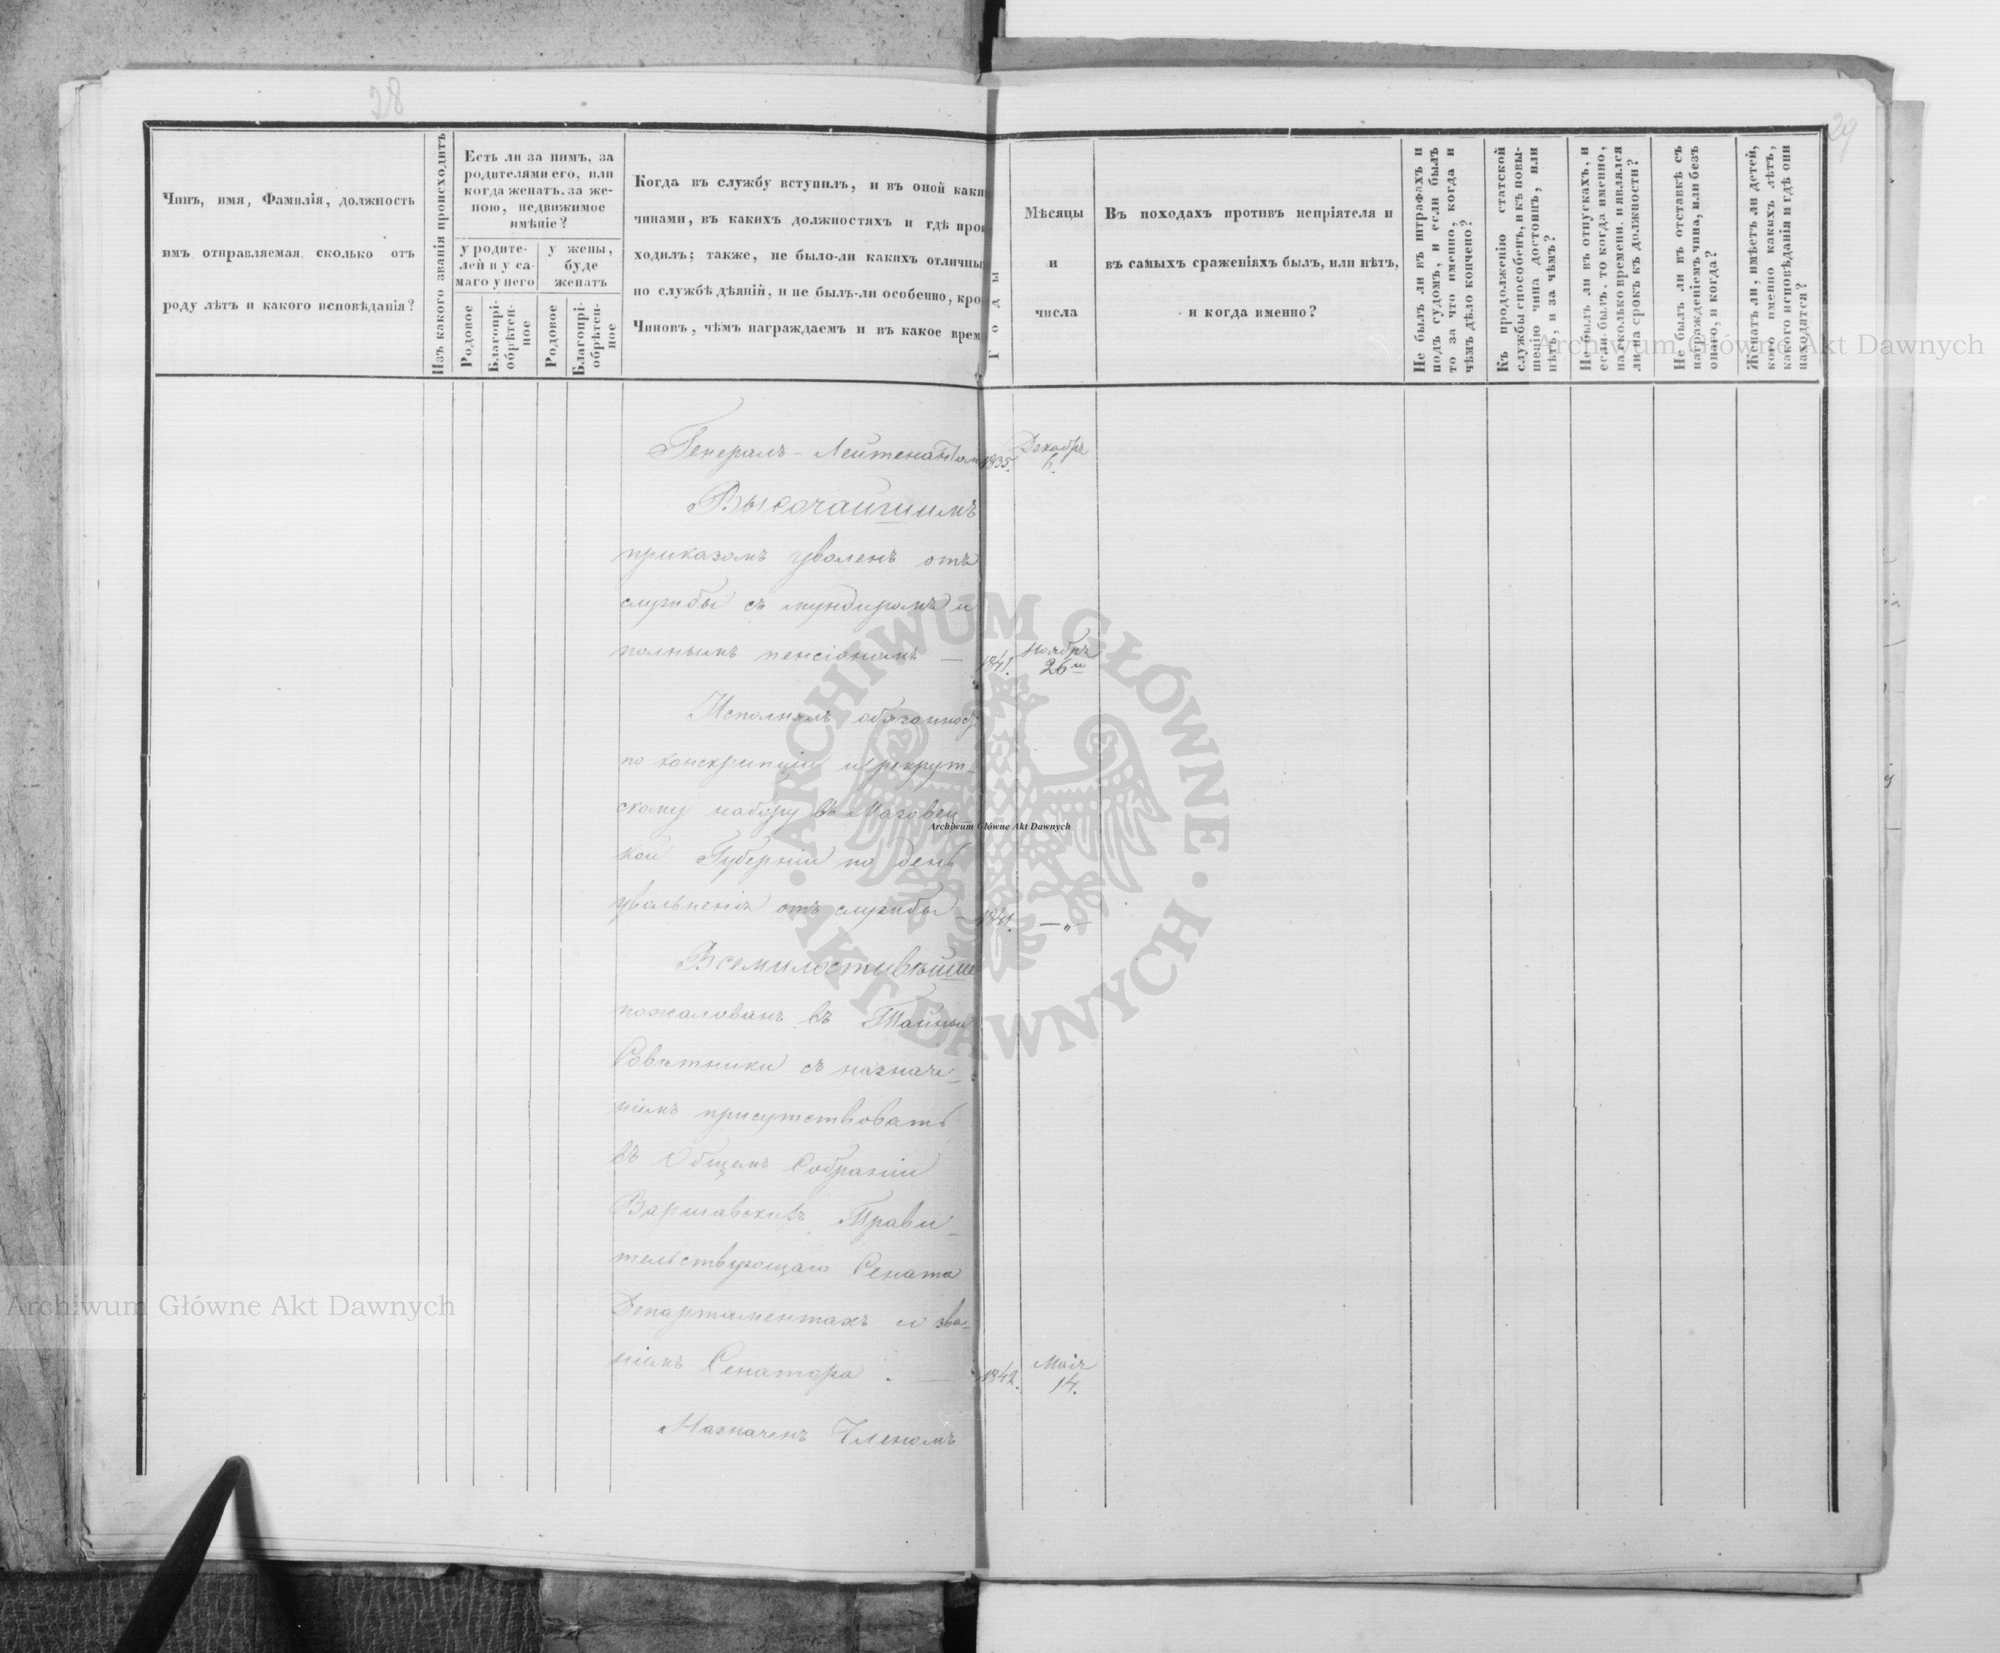 28
29
Чинъ, имя, Фамилія, должность
имъ отправляемая, сколько отъ
роду лѣтъ и какого исповѣданія?
Изъ какого званія происходитъ
Есть ли за нимъ, за
родителями его, или
когда женатъ, за же-
ною, недвижимое
имѣніе?
у родите-
лей и у са-
маго у него
у жены,
буде
женатъ
Родовое
Благопрі-
обрѣтен-
ное
Родовое
Благопрі-
обрѣтен-
ное
Когда въ службу вступилъ, и въ оной каки
чинами, въ какихъ должностяхъ и гдѣ про
ходилъ; также, не было-ли какихъ отличны
по службѣ дѣяній, и не былъ-ли особенно, кро
Чиновъ, чѣмъ награждаемъ и въ какое врем
Годы
Мѣсяцы
и
числа
Въ походахъ противъ непріятеля и
въ самыхъ сраженіяхъ былъ, или нѣтъ,
и когда именно?
Не былъ ли въ штрафахъ и
подъ судомъ, и если былъ
то за что именно, когда и
чѣмъ дѣло кончено?
Къ продолженію статской
службы способенъ, и къ повы-
шенію чина достоинъ, или
нѣтъ, и за чѣмъ?
Не былъ ли въ отпускахъ, и
если былъ, то когда именно,
на сколько времени, и явился
ли на срокъ къ должности?
Не былъ ли въ отставкѣ съ
награжденіемъ чина, или безъ
онаго, и когда?
Женатъ ли, имѣетъ ли дѣтей,
кого именно какихъ лѣтъ,
какого исповѣданія и гдѣ они
находятся?
Генералъ-Лейтенантом 1835. Декабря
6.
Высочайшимъ
приказомъ уволенъ отъ
службы съ мундиромъ и
полнымъ пенсіономъ — 1841. Ноября
26го
Исполнялъ обязанность
по конскрипціи и рекрут-
скому набору въ Мазовец-
кой Губерніи по день
увольненія отъ службы 1841. — „ —
Всемилостивѣйше
пожалованъ въ Тайные
Совѣтники съ назначе-
ніемъ присутствовать
въ Общемъ Собраніи
Варшавскихъ Прави-
тельствующаго Сената
Департаментахъ и зва-
ніемъ Сенатора. — 1842. Маія
14.
Назначенъ Членомъ
Archiwum Główne Akt Dawnych
ARCHIWUM GŁÓWNE · AKT DAWNYCH ·
Archiwum Główne Akt Dawnych
Archiwum Główne Akt Dawnych